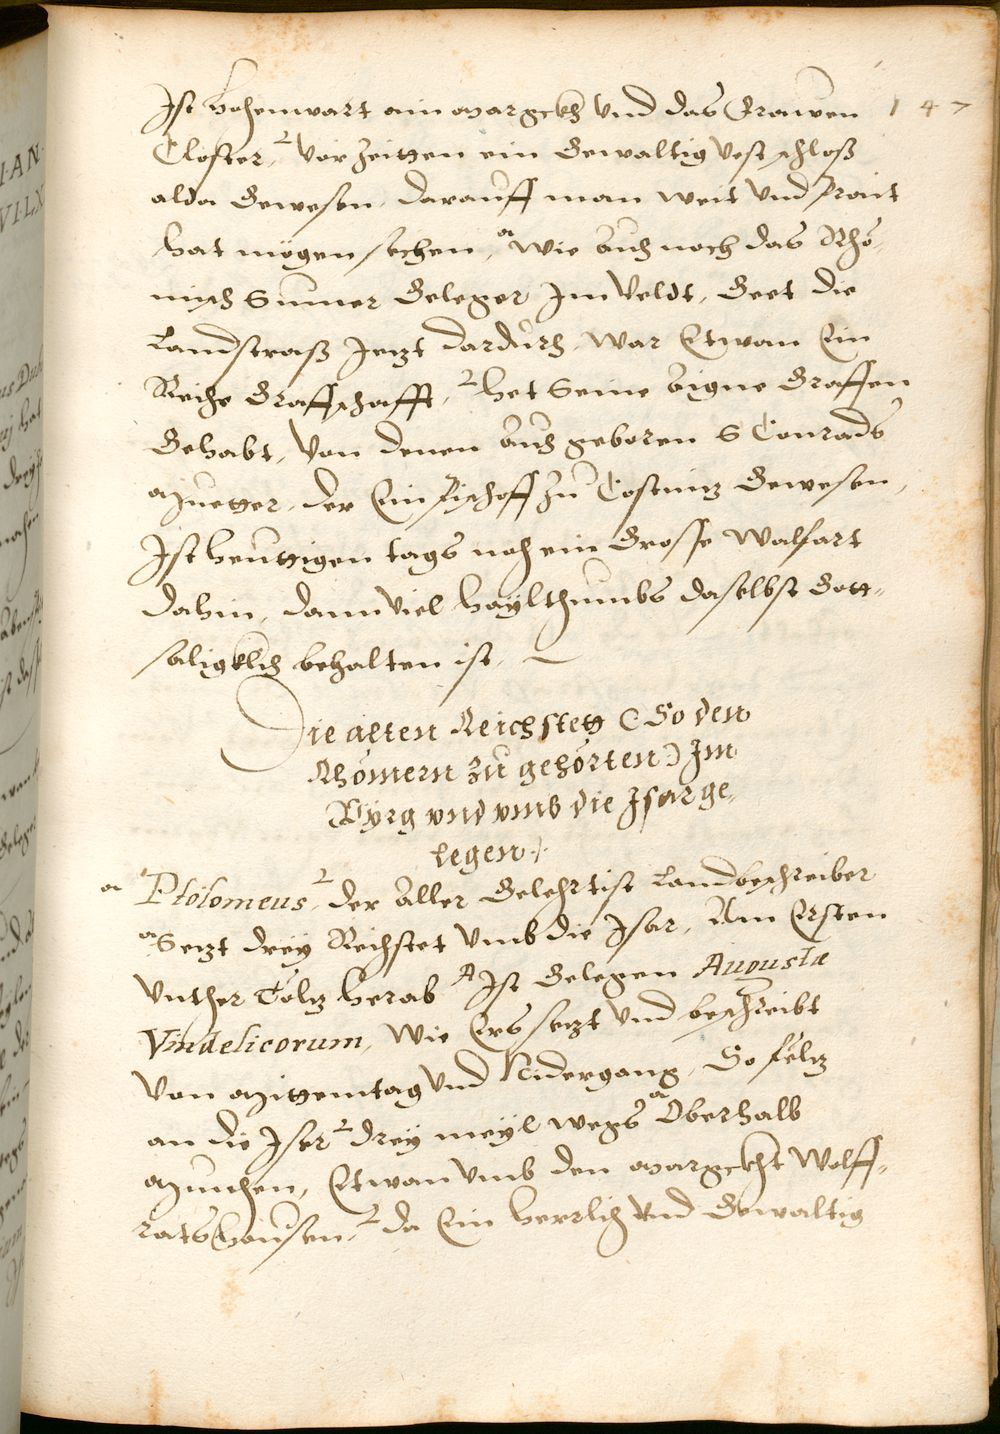 Ist hohenwart ain margckh Vnd das Frawen 147
Closter, Vor Zeitten ein Gewaltig Vest schloß
alda Gewesen, darauff man weit Vnd prait
hat mögen sechen, Wie auch noch das Rhö
misch Sumer Geleger Im Veldt, Geet die
Landstraß Jetzt dardurch, War Etwan Ein
Reiche Graffschafft, het Seine aigne Graffen
Gehabt, Von denen auch geboren S Conrads
Muetter, der Ein Bischoff Zu Costnitz Gewesen,
Ist heuttigen tags noch ein Grosse Walfart
dahin, dann Viel haylthumbs daselbst Gott=
saligklich behalten ist.
Die alten Reichstett (So den
Rhömern zu gehörten) Im
Byrg vnd vmb die Isar ge
legen.
Ptolomeus, der aller Gelehrtist Landbeschreiber
Setzt drey Reichstet Vmb die Isar, Am Ersten
Vnther Töltz herab Ist Gelegen Augusta
Vindelicorum, Wie Ers setzt Vnd beschreibt
Von Mittemtag Vnd Nidergang, So
an die Iser drey meyl wegs Oberhalb
München, Etwan Vmb den Margckht Wolff=
ratshausen, da Ein herrlich Vnd Gewaltig